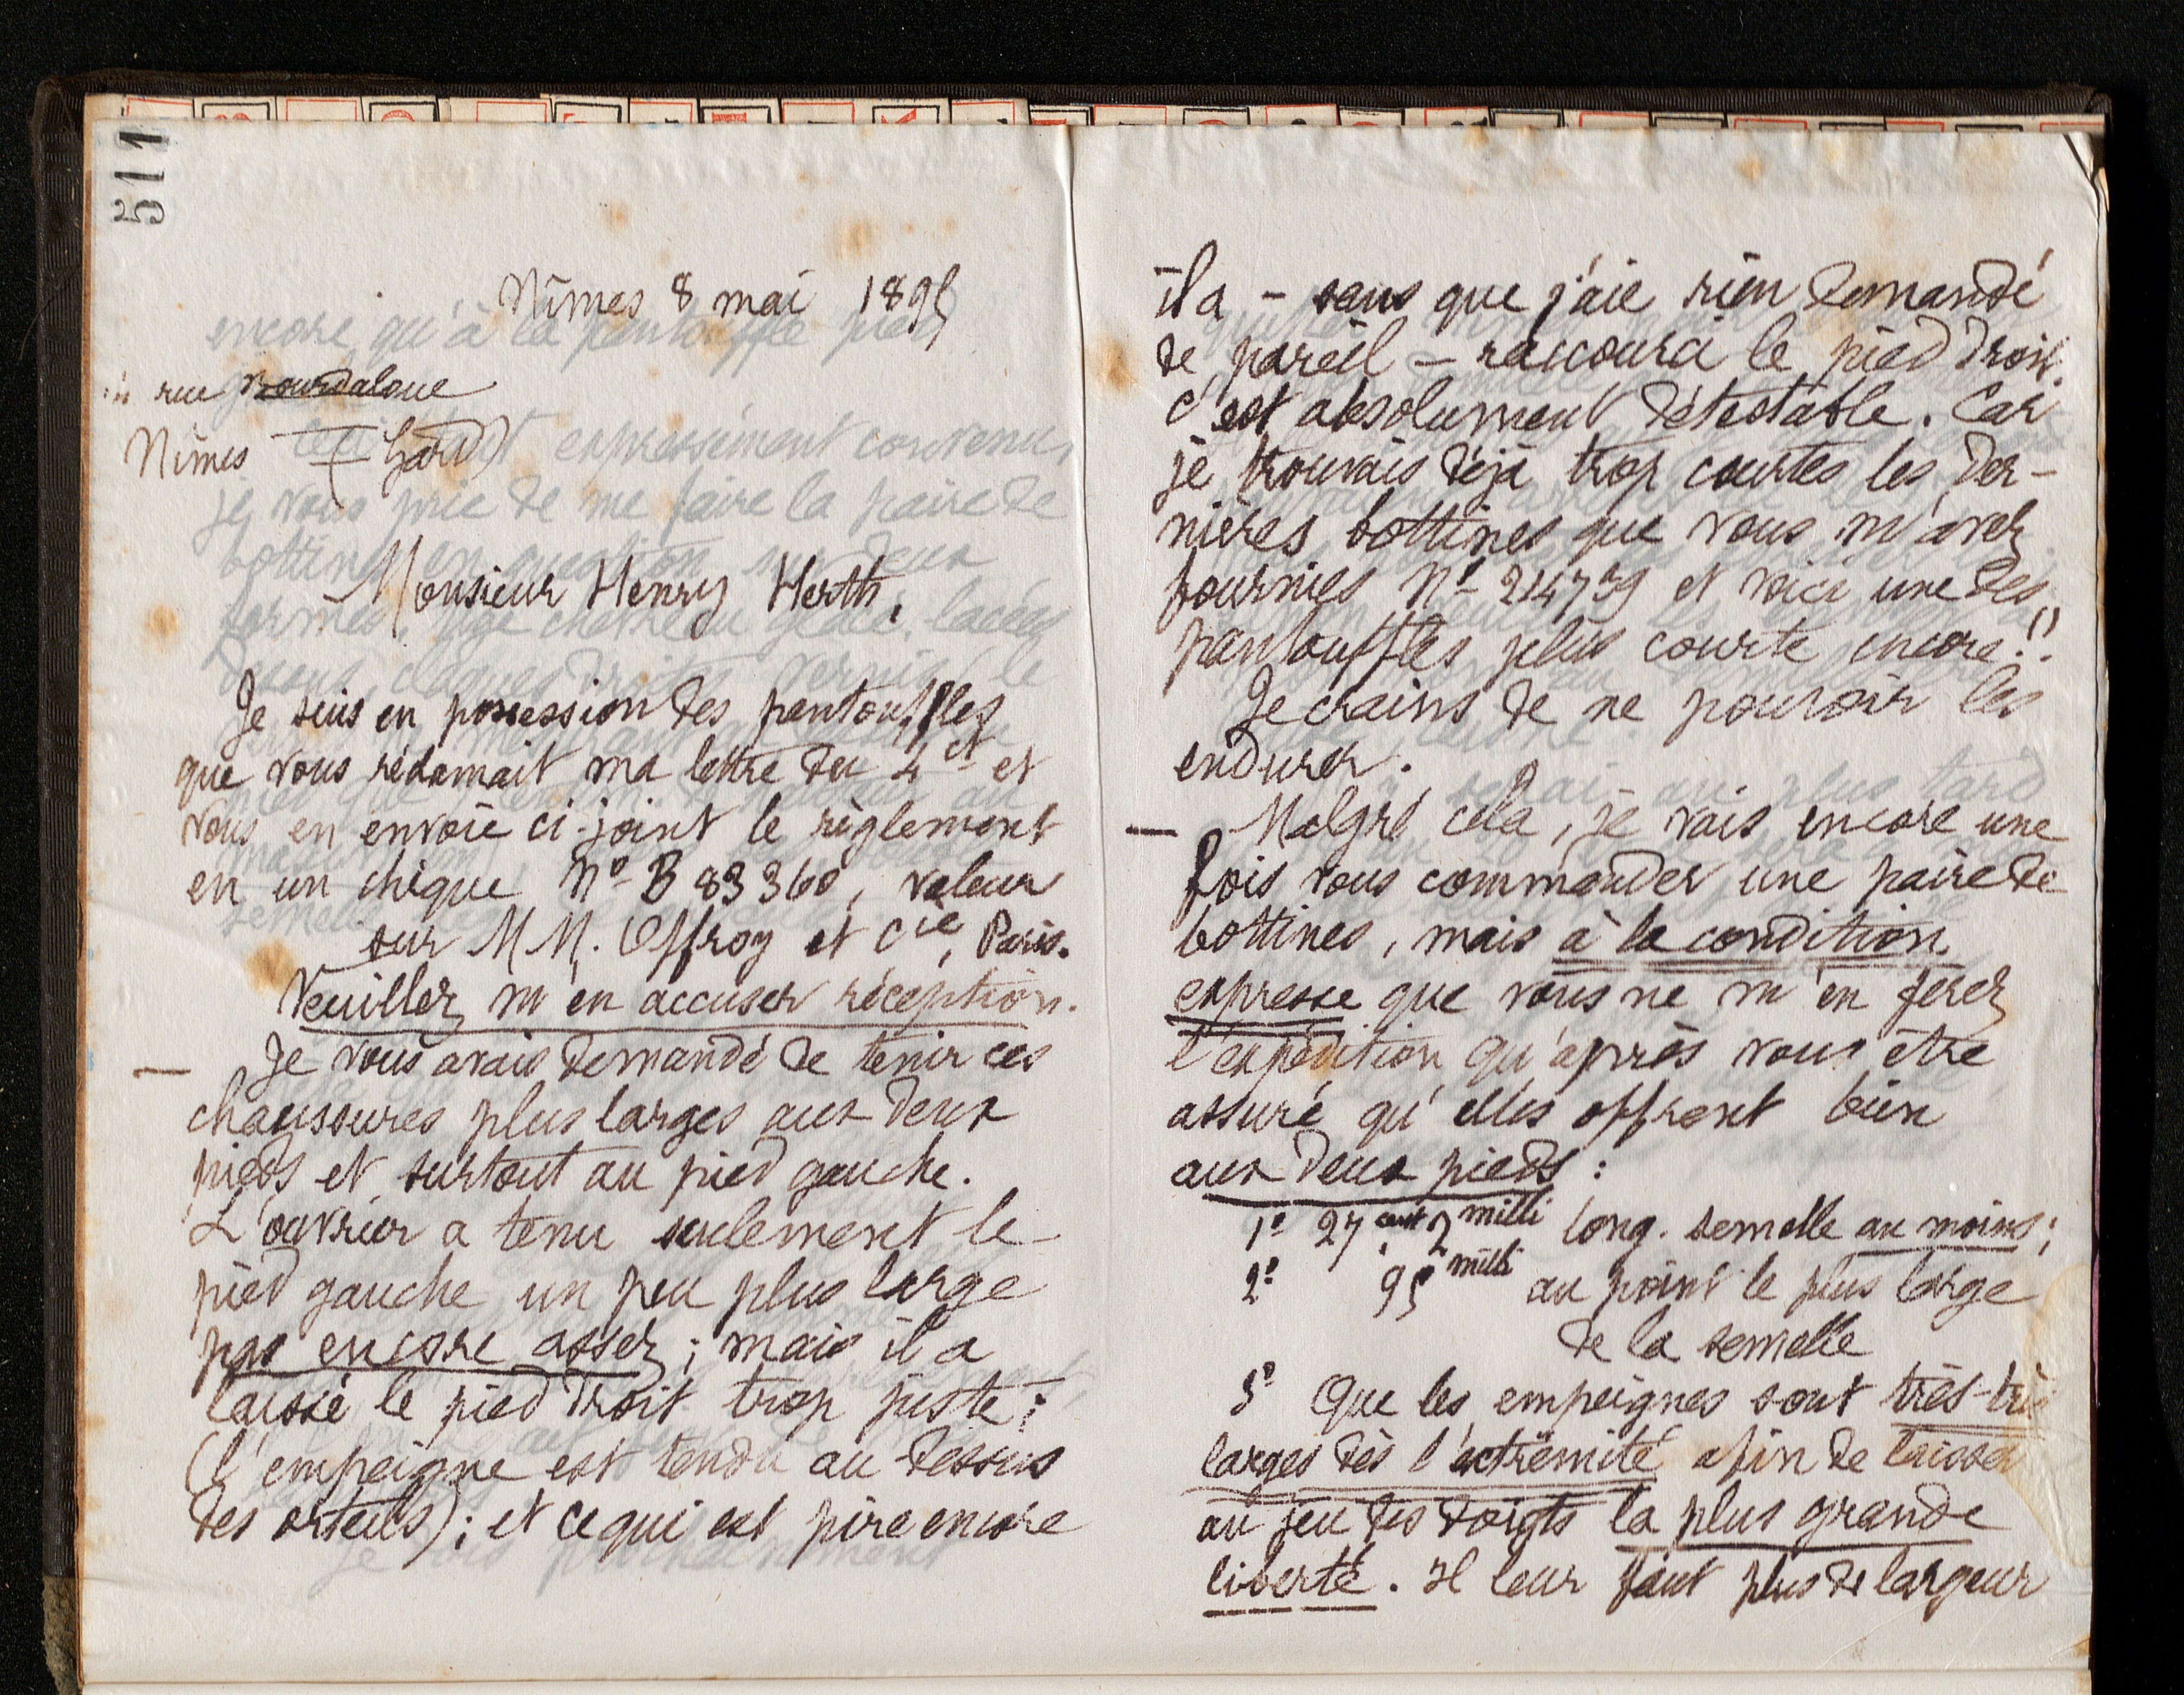 511
Nîmes 8 mai 1895
rue Bourdaloue
Nîmes (Gard)
Monsieur Henry Herth,
Je suis en possession des pantouffles
que vous réclamait ma lettre du 4 ct et
vous en envoie ci-joint le règlement
en un chèque No B 83360, valeur
sur MM. Offroy et Cie, Paris.
Veuillez m'en accuser réception.
— Je vous avais demandé de tenir ces
chaussures plus larges aux deux
pieds et surtout au pied gauche.
L'ouvrier a tenu seulement le
pied gauche un peu plus large
pas encore assez ; mais il a
laissé le pied droit trop juste ;
(l'empeigne est tendu au dessus
des orteils) ; et ce qui est pire encore
il a – sans que j'aie rien demandé
de pareil – raccourci le pied droit.
C'est absolument détestable. Car
je trouvais déjà trop courtes les der-
nières bottines que vous m'avez
fournies No 21479 et voici une des
pantouffles plus courte encore !!
Je crains de ne pouvoir les
endurer.
— Malgré cela, je vais encore une
fois vous commander une paire de
bottines, mais à la condition
expresse que vous ne m'en ferez
l'expédition qu'après vous être
assuré qu'elles offrent bien
aux deux pieds :
1o 27 cent 2 milli long. semelle au moins ;
2o 95 milli au point le plus large
de la semelle
3o Que les empeignes sont très-très
larges dès l'extrêmité afin de laisser
au jeu des doigts la plus grande
liberté. Il leur faut plus de largeur